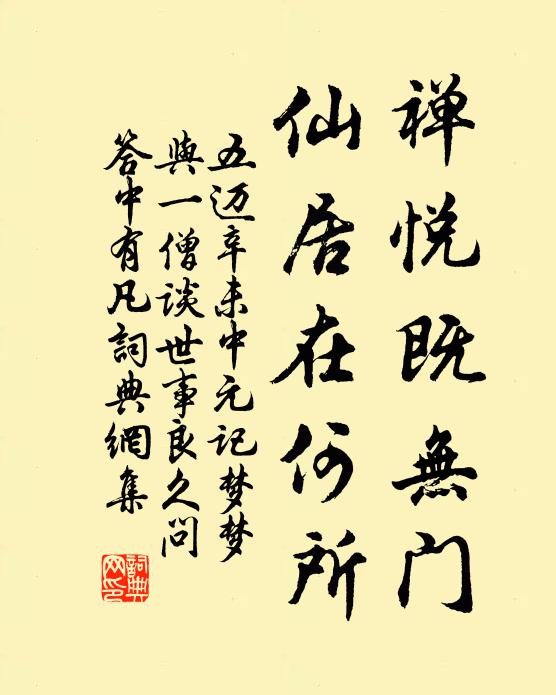 禅悦既無門
仙居在何所
五迈辛未中元记梦梦
與一僧谈世事良久问
答中有凡詞典網集
詞典网印